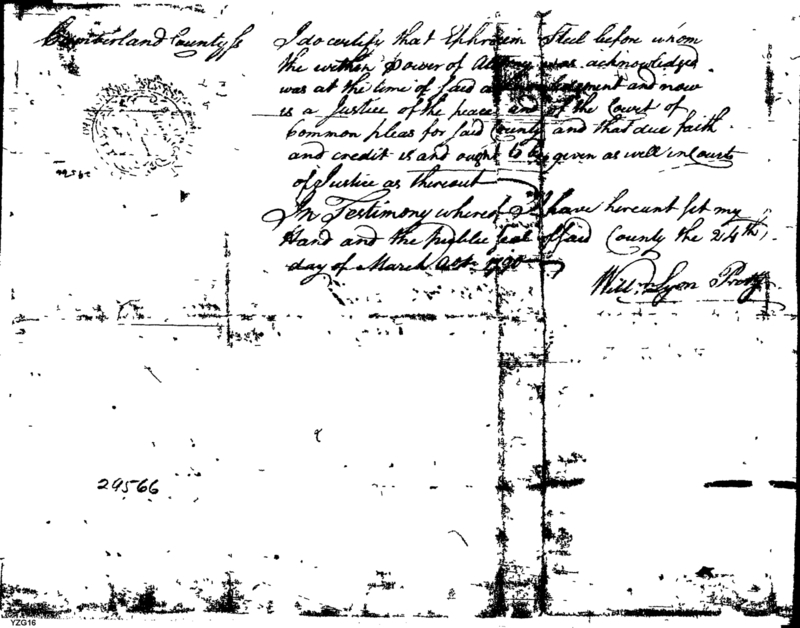 Cumberland County ss
I do certify that Ephraim Steel before whom
the within Power of Attorney was acknowledged
was at the time of said acknowledgment and now
is a Justice of the peace and of the Court of
Common pleas for said County and that due faith
and credit is and ought to be given as well in Courts
of Justice as thereout
In Testimony whereof I have hereunt set my
Hand and the public seal of said County the 24th
day of March 1790
Willm Lyon Proty
29566
YZG16